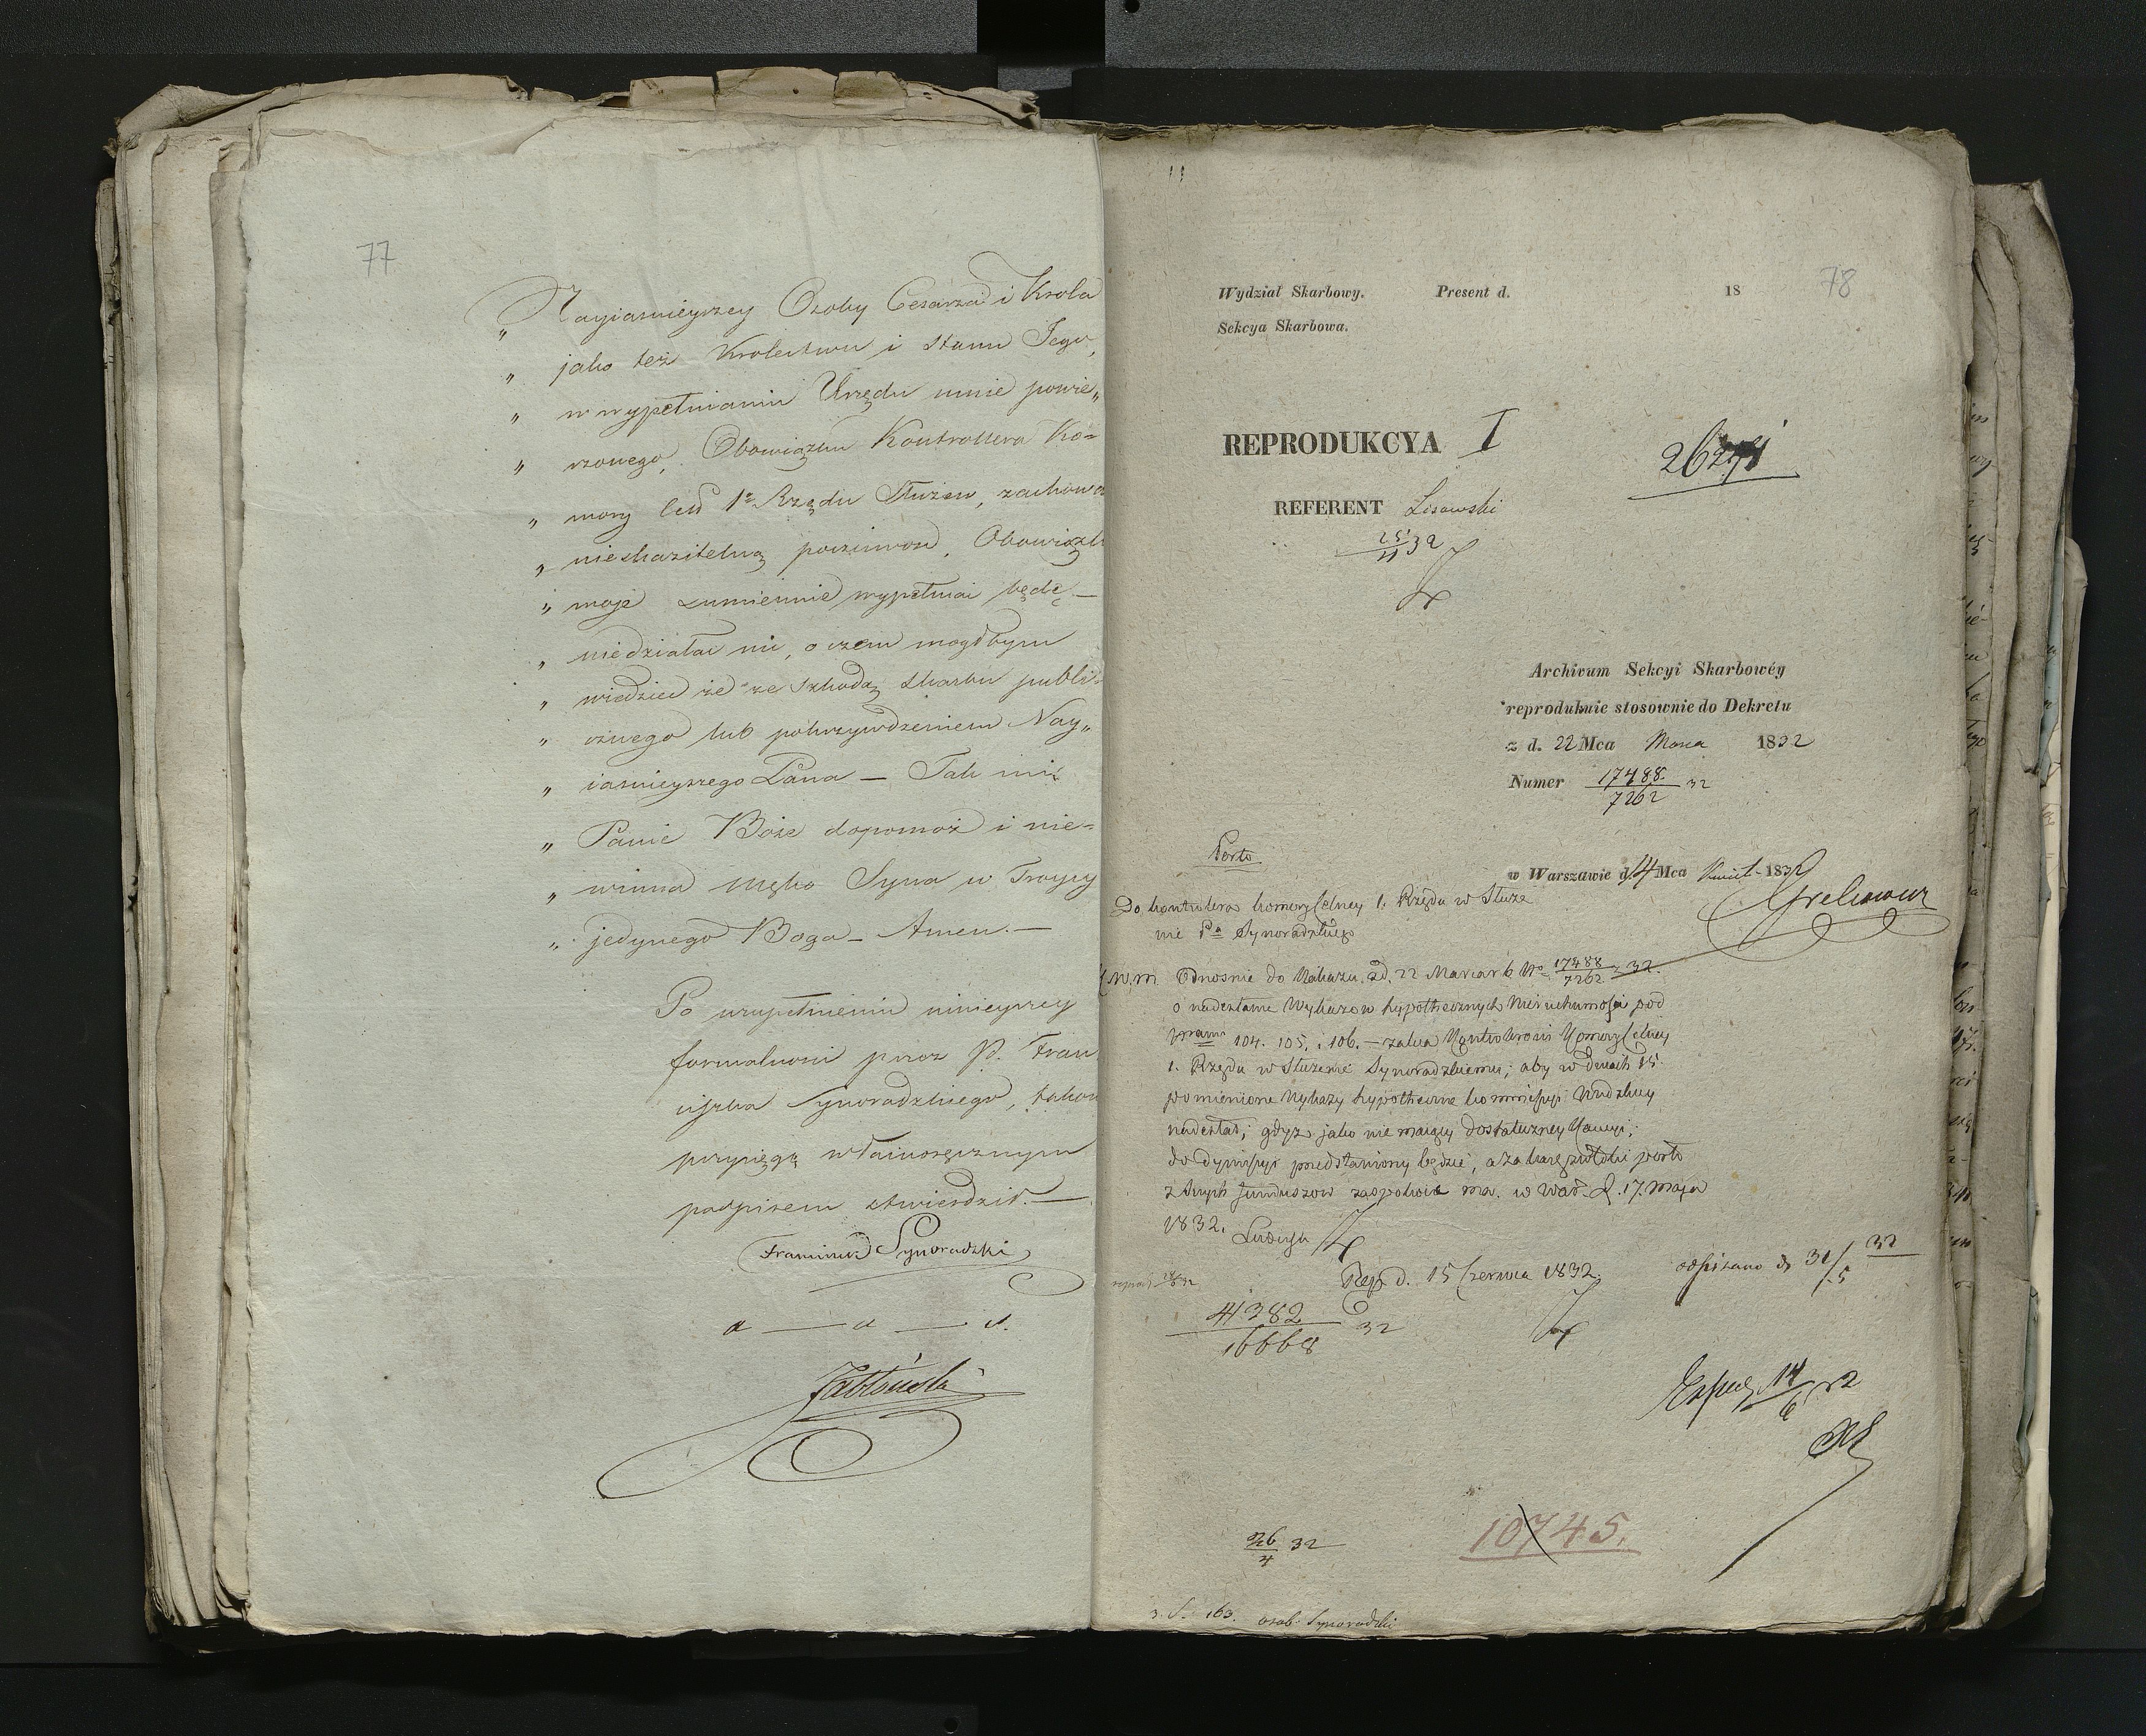 77
„ Nayiasnieyszey Osoby Cesarza i Krola
„ jako też Krolestwu i stanu Jego,
„ w wypełnianiu Urzędu mnie powie„
„ rzonego, Obowiązku Kontrollera Ko=
„ mory Celł 1º Rzędu Służew, zachowa
„ nieskazitelną poczciwość, Obowiązki
„ moje sumiennie wypełniać będę —
„ niedziałać nic, o czem mogłbym
„ wiedzieć że ze szkodą skarbu publi=
„ cznego lub pokrzywdzeniem Nay„
„ iasnieyszego Pana — Tak mi
„ Panie Boże dopomoż i nie=
„ winna męko Syna w Troycy
„ jedynego Boga — Amen. —
Po uzupełnieniu ninieyszey
formalnosci przez P. Fran
ciszka Synoradzkiego, takow
przysięgę własnoręcznym
podpisem stwierdził. —
Franciszek Synoradzki
a — u — s.
Jabłoński
78
Wydział Skarbowy. Present d. 18
Sekcya Skarbowa.
REPRODUKCYA I
REFERENT Lisowski
Archivum Sekcyi Skarbowéy
reprodukuie stosownie do Dekretu
z d. 22 Mca Marca 1832
Numer 17488/7262 32
w Warszawie d. 14 Mca Kwiet. 1832
Porto
Do kontrolera komory Celney 1. Rzędu w Służe
wie Pª Synoradzkiego
Odnosnie do Nakazu z d. 22 Marca r b Nº 17488/7262 32.
o nadesłanie Wykazow hypothecznych Nieruchomości pod
Nrami 104. 105. i 106. — zaleca Kontrolerowi Komory Celney
1. Rzędu w Służewie Synoradzkiemu; aby w Dniach 15.
pomienione Wykazy hypoteczne kommissyi Wudzkiey
nadesłał; gdyż jako nie maiący dostateczney Kaucyi;
do dymissyi przedstawiony będzie, a za karę zwłoki porto
z swych funduszow zaspokoić ma. w War. d. 17. maja
1832.
Rep. d. 15 Czerwca 1832
odpisano d. 31/5 32
41382/16668 32
Exped 14/6 32
26/4 32
10745.
3. S. 163. osob: Synoradzki